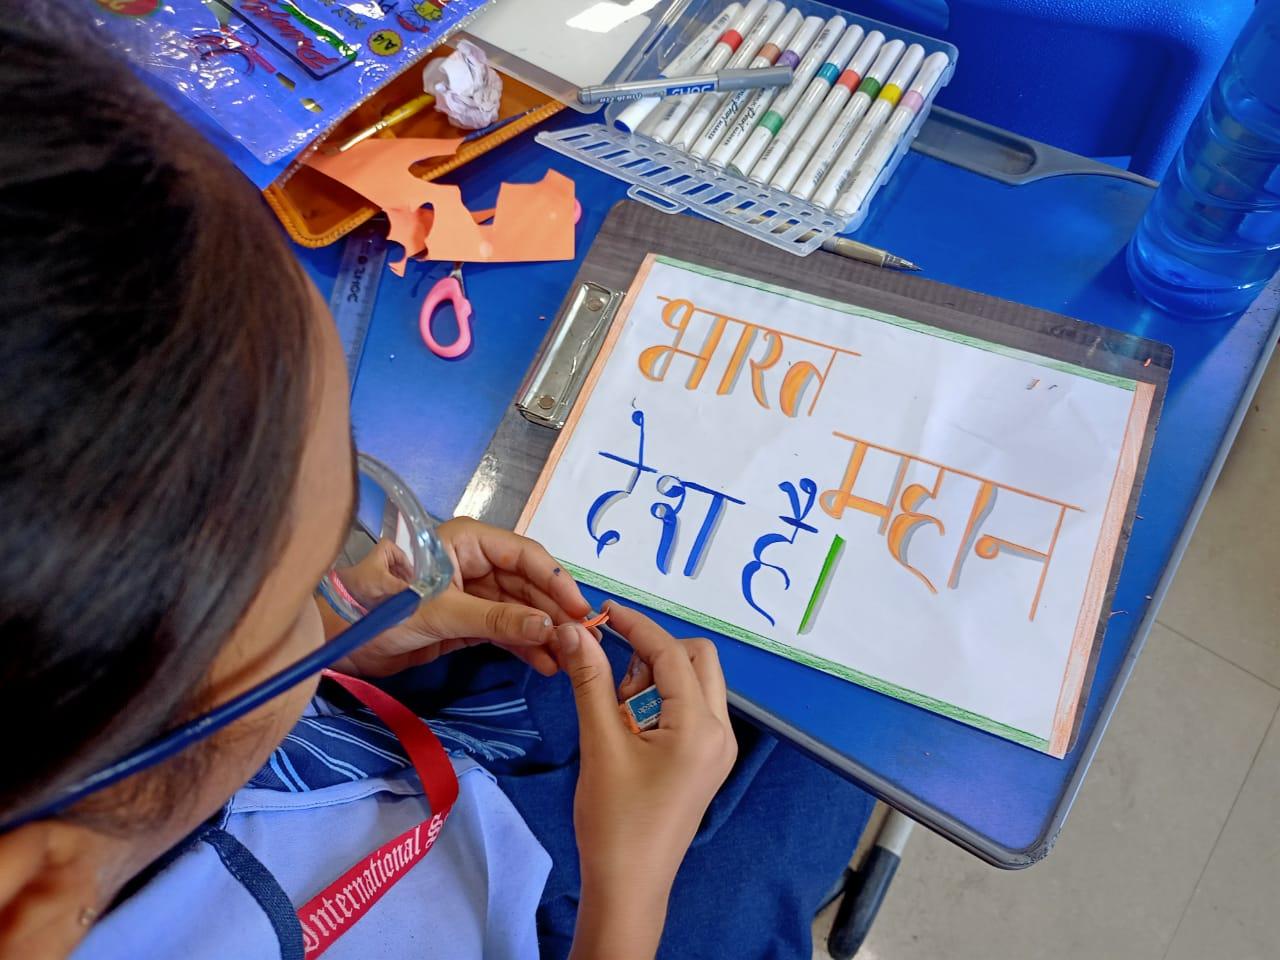 भारत
महान
देश है।
International